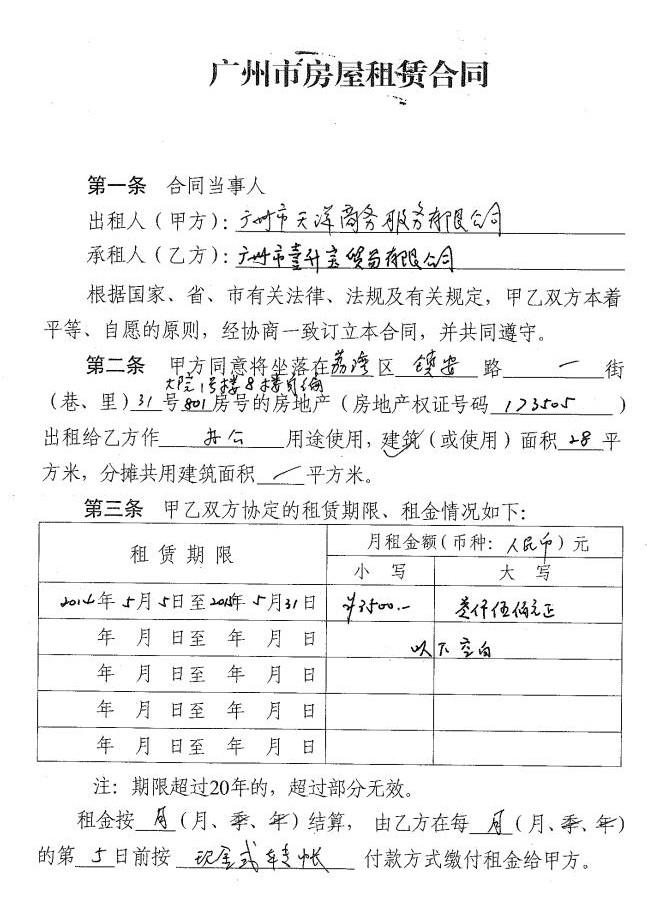 广州市房屋租赁合同
第一条 合同当事人
出租人(甲方):广州市天洋商务服务有限公司
承租人(乙方):广州市壹升宝贸易有限公司
根据国家、省、市有关法律、法规及有关规定,甲乙双方本着
平等、自愿的原则,经协商一致订立本合同,并共同遵守。
第二条 甲方同意将坐落在荔湾区 镇安 路 一 街
大院1号楼8楼
(巷、里)31号801房号的房地产(房地产权证号码 173505 )
出租给乙方作 办公 用途使用,建筑(或使用)面积28平
方米,分摊共用建筑面积 / 平方米。
第三条 甲乙双方协定的租赁期限、租金情况如下:
租赁期限
月租金额(币种:人民币)元
小 写 大 写
2014年5月5日至2015年5月31日 ¥3500.— 叁仟伍佰元正
年 月 日至 年 月 日 以下空白
年 月 日至 年 月 日
年 月 日至 年 月 日
年 月 日至 年 月 日
注:期限超过20年的,超过部分无效。
租金按 月(月、季、年)结算, 由乙方在每 月(月、季、年)
的第 5 日前按 现金或转帐 付款方式缴付租金给甲方。